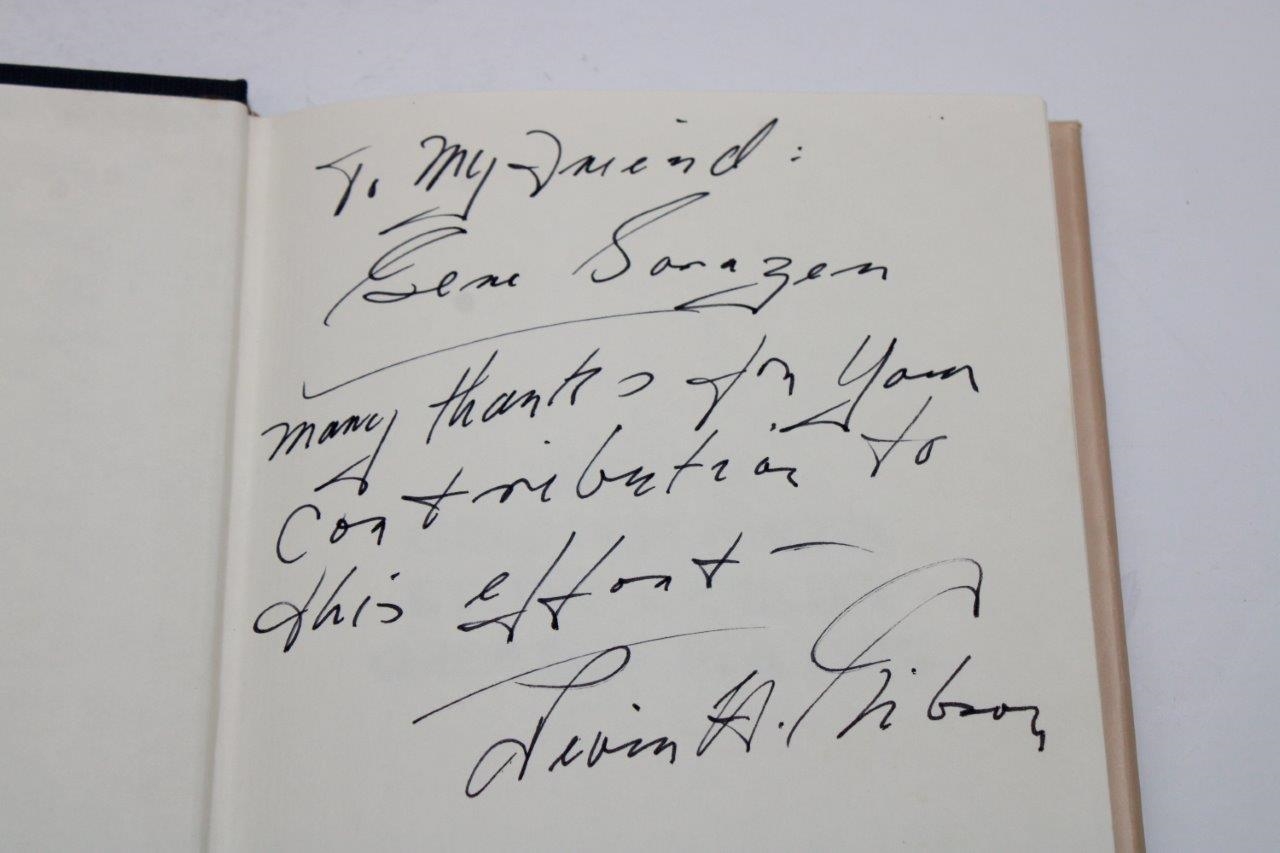 To My Friend:
Gene Sarazen
many thanks for your
contribution to
this effort —
Nevin H. Gibson